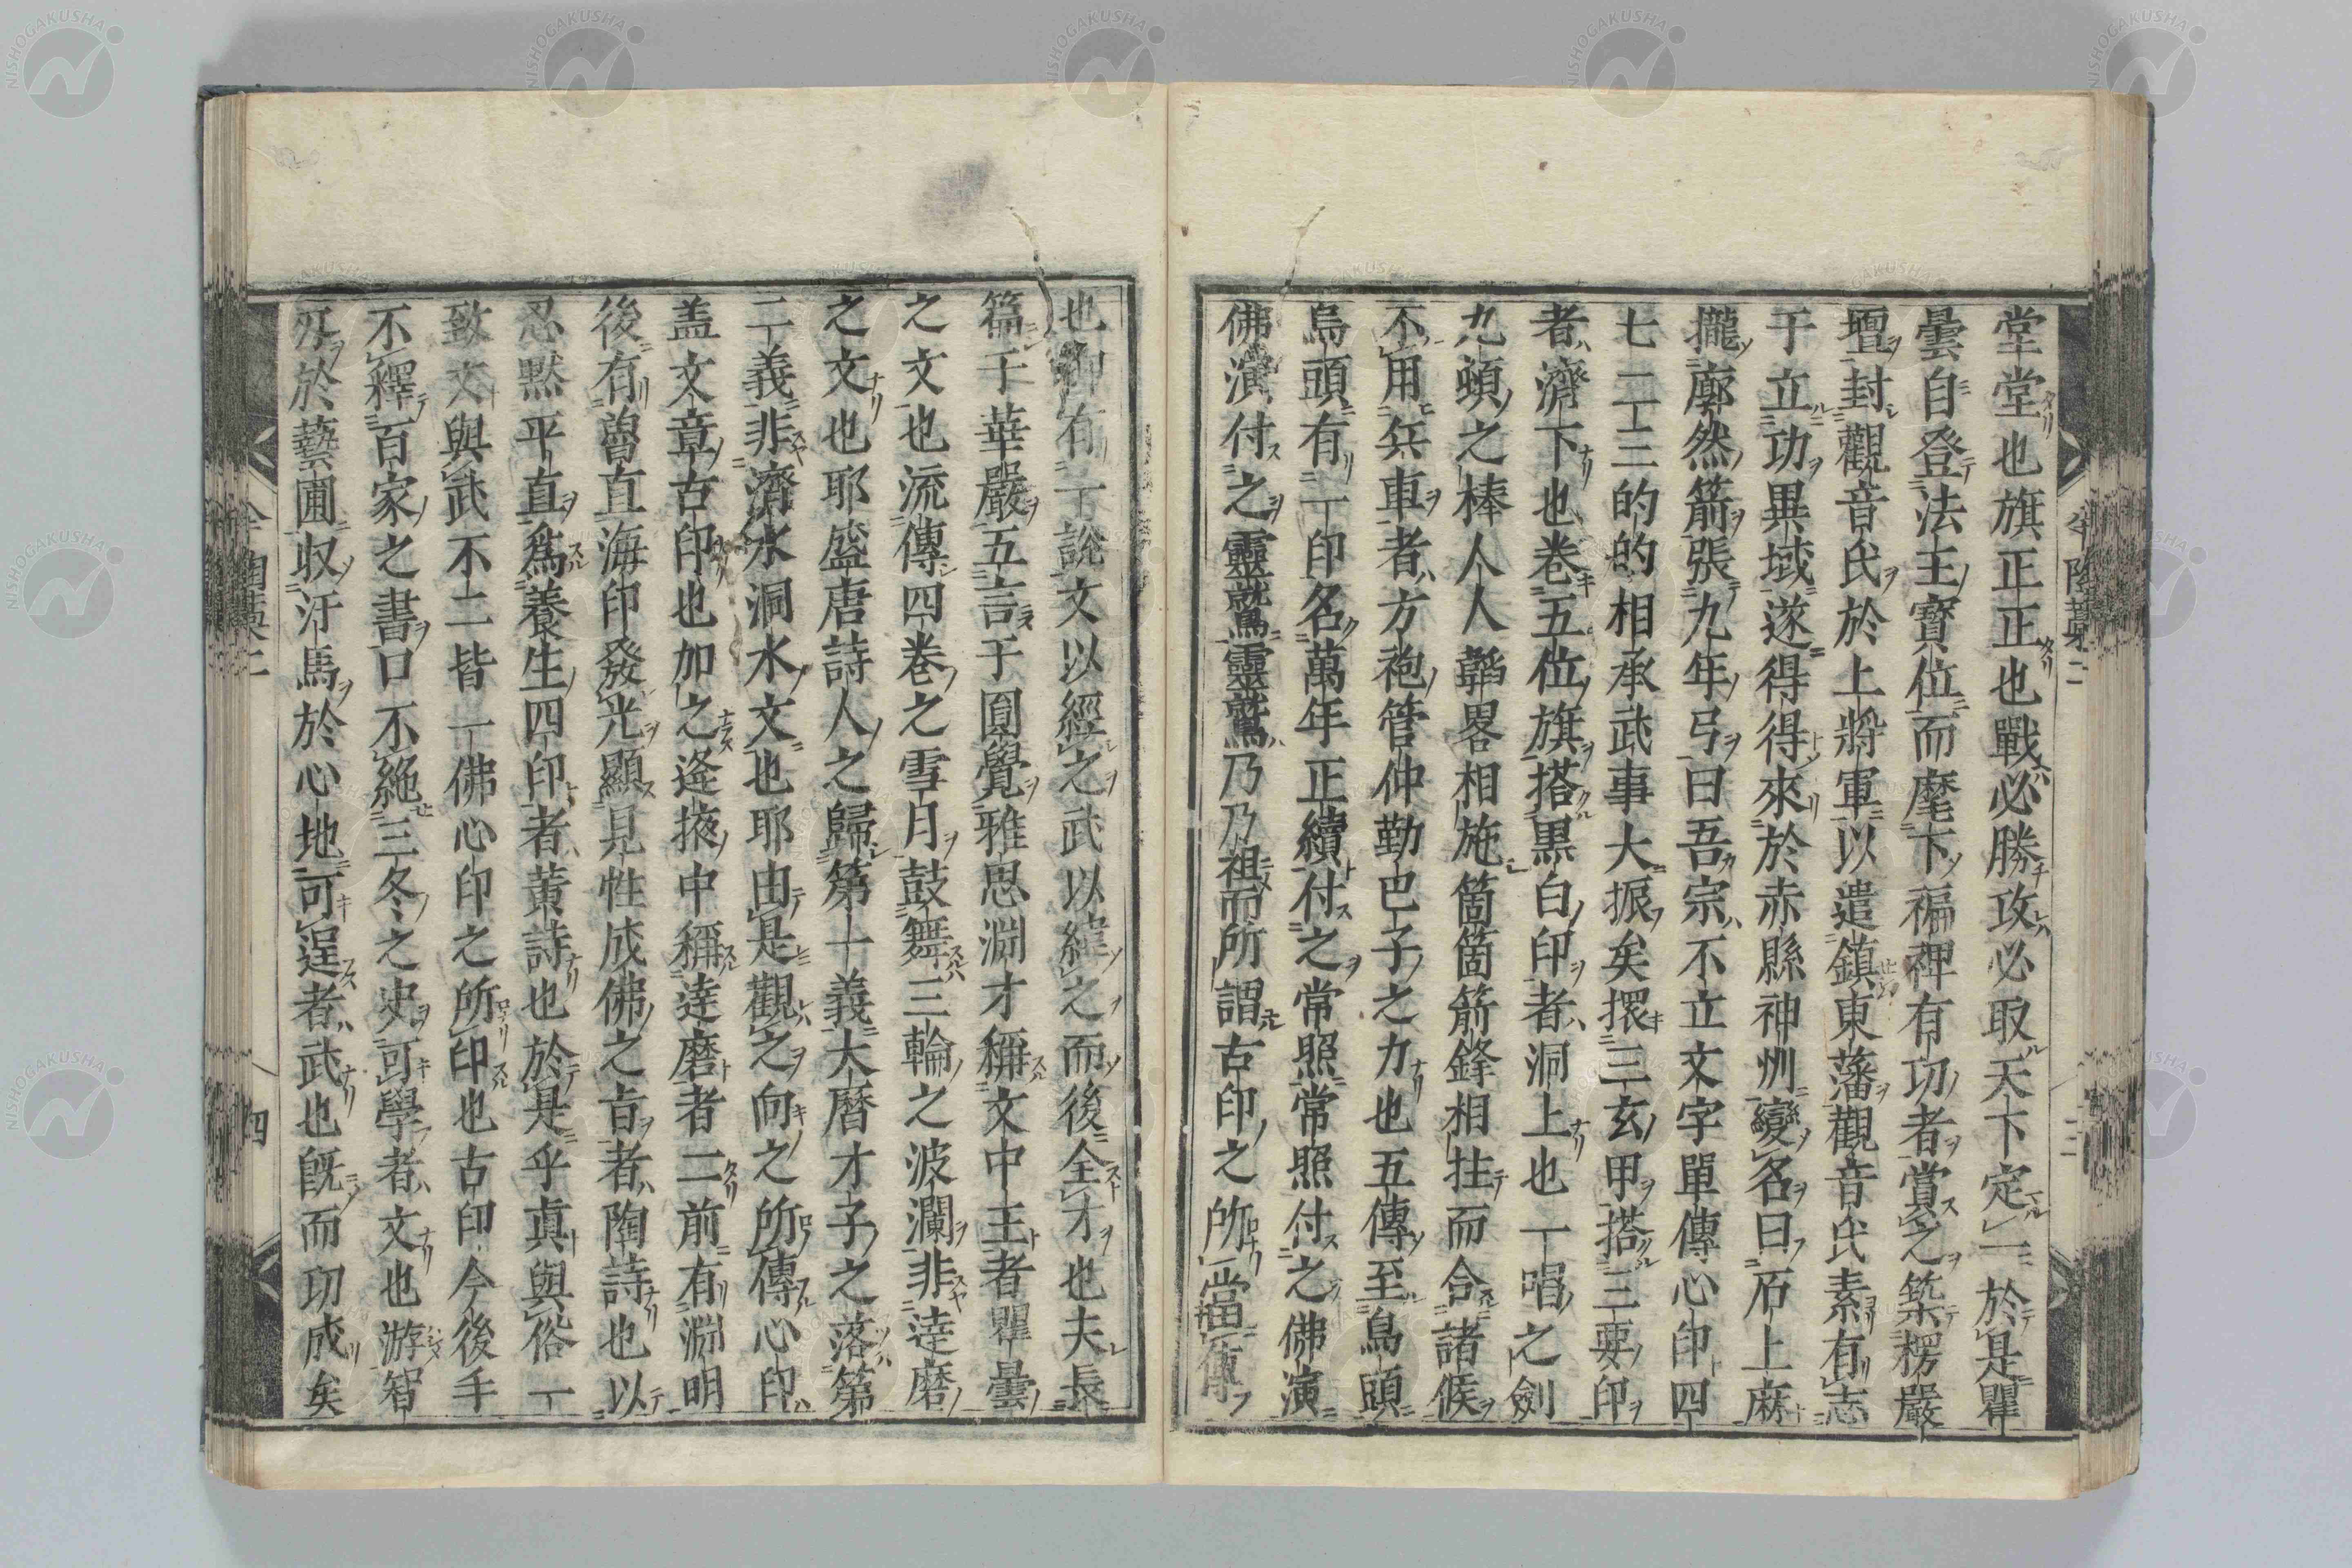 堂堂也旗正正也戰必勝攻必取天下定一於是瞿
曇自登法王寶位而麾下褊裨有功者賞之築楞嚴
壇封觀音氏於上將軍以遣鎮東藩觀音氏素有志
于立功異域遂得得來於赤縣神州變名曰石上麻
擺廓然箭張九年弓曰吾宗不立文字單傳心印四
七二三的的相承武事大振矣擐三玄甲搭三要印
者濟下也卷五位旗搭黒白印者洞上也一唱之劍
九頓之棒人人韜畧相施箇箇箭鋒相拄而合諸候
不用兵車者方袍管仲勤巴子之力也五傳至鳥頭
鳥頭有一印名萬年正續付之常照常照付之佛演
佛演付之靈鷲靈鷲乃乃祖而所謂古印之所當傳
也御有一說文以經之武以緯之而後全才也夫長
篇于華嚴五言于圓覺雅思淵才稱文中王者瞿曇
之文也流傳四卷之雪月鼓舞三輪之波瀾非達磨
之文也耶盛唐詩人之歸第一義大曆才子之落第
二義非濟水洞水文也耶由是觀之向之所傳心印
盖文章古印也加之逢掖中稱達磨者二前有淵明
後有魯直海印發光顯見性成佛之旨者陶詩也以
忍默平直爲養生四印者黃詩也於是乎真與俗一
致文與武不二皆一佛心印之所印也古印今後手
不釋百家之書口不絶三冬之史可學者文也游智
刃於藝圃収汗馬於心地可逞者武也旣而功成矣
二
三
二
四
NISHOGAKUSHA